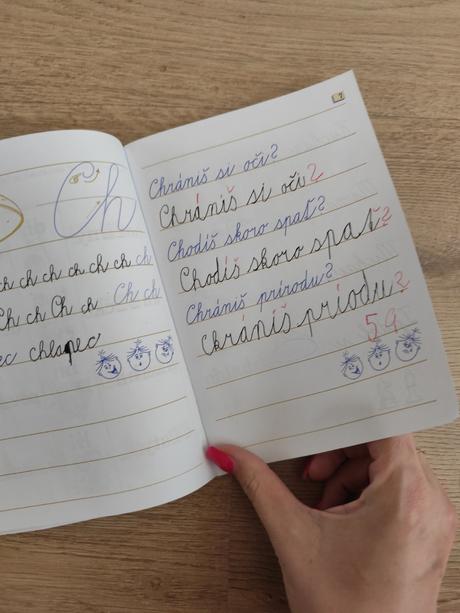 Ch
ch ch ch ch ch ch ch
Ch ch Ch ch Ch ch
chlapec
Chrániš si oči?
Chrániš si oči?
Chodíš skoro spať?
Chodíš skoro spať?
Chrániš prírodu?
Chrániš príodu?
59